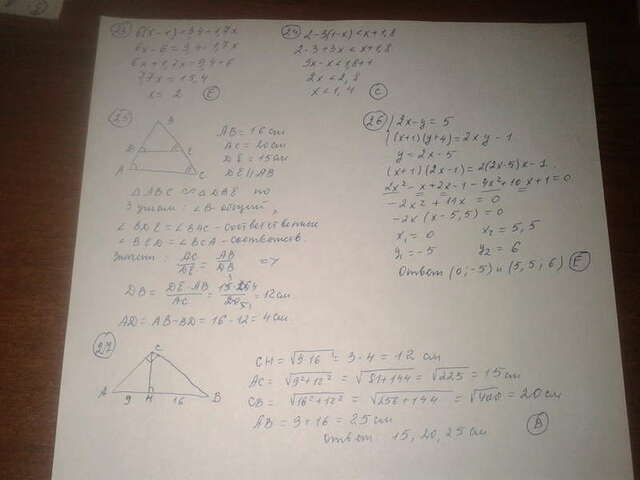 23 6(x-1)=9,4-1,7x
6x-6=9,4-1,7x
6x+1,7x=9,4+6
7,7x=15,4
x = 2 E
24 2-3(1-x)<x+1,8
2-3+3x<x+1,8
3x-x<1,8+1
2x<2,8
x<1,4 C
25
B
D E
A C
AB=16см
AC=20см
DE=15см
DE||AB
△ABC ∾ △DBE по
3 углам: ∠B-общий,
∠BDE=∠BAC-соответственные
∠BED=∠BCA-соответств.
Значит: AC/DE = AB/DB =>
DB = DE·AB/AC = 15·16/20 = 12см
AD=AB-BD=16-12=4см
26 2x-y=5
(x+1)(y+4)=2xy-1
y=2x-5
(x+1)(2x-1)=2(2x-5)x-1
2x²-x+2x-1-4x²+10x+1=0
-2x²+11x=0
-2x(x-5,5)=0
x₁=0 x₂=5,5
y₁=-5 y₂=6
Ответ (0;-5) и (5,5;6) E
27
C
A 9 H 16 B
CH=√9·16=3·4=12 см
AC=√9²+12²=√81+144=√225=15см
CB=√16²+12²=√256+144=√400=20см
AB=9+16=25см
Ответ: 15, 20, 25см
B